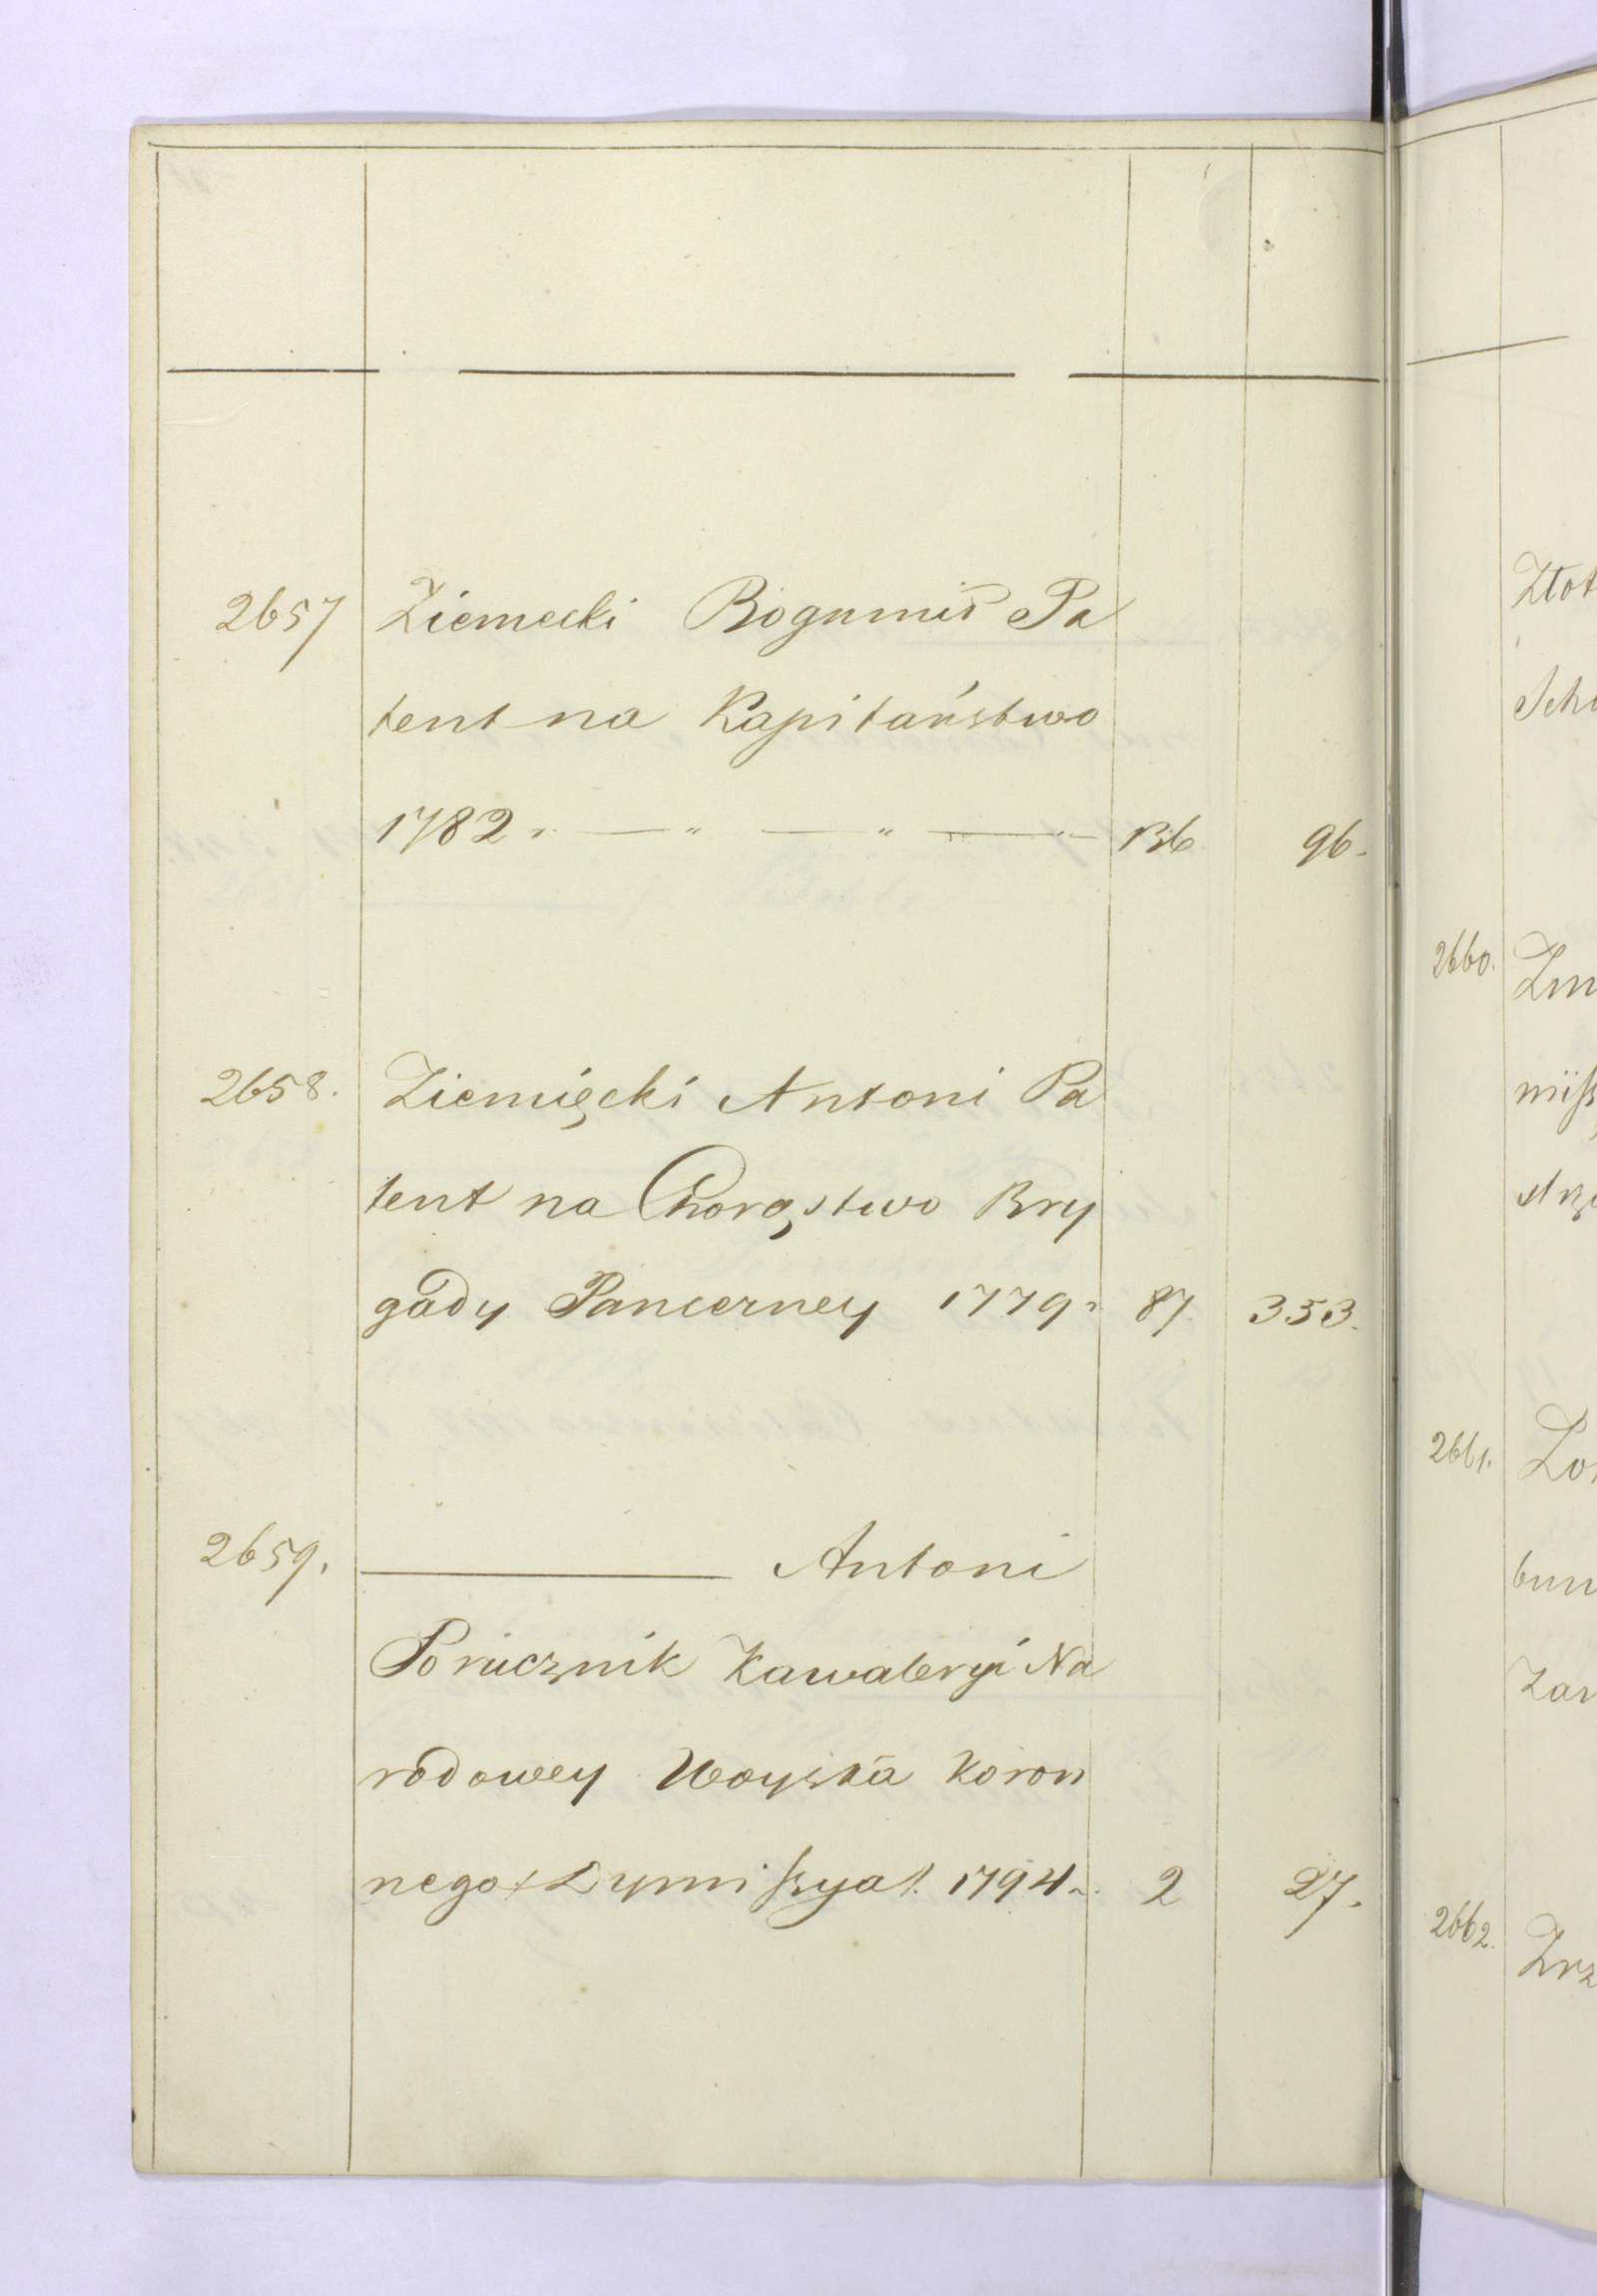 2657 Ziemecki Bogumił Pa
tent na Kapitaństwo
1782. — " — " — " 96.
2658. Ziemięcki Antoni Pa
tent na Chorąstwo Bry
gady Pancerney 1779. 87. 353.
2659. ——— Antoni
Porucznik Kawaleryi Na
rodowey Woyska Koron
nego Dymissya 1794. 2 27.
Złot
2660. Zm
2661.
bun
2662. Zrz